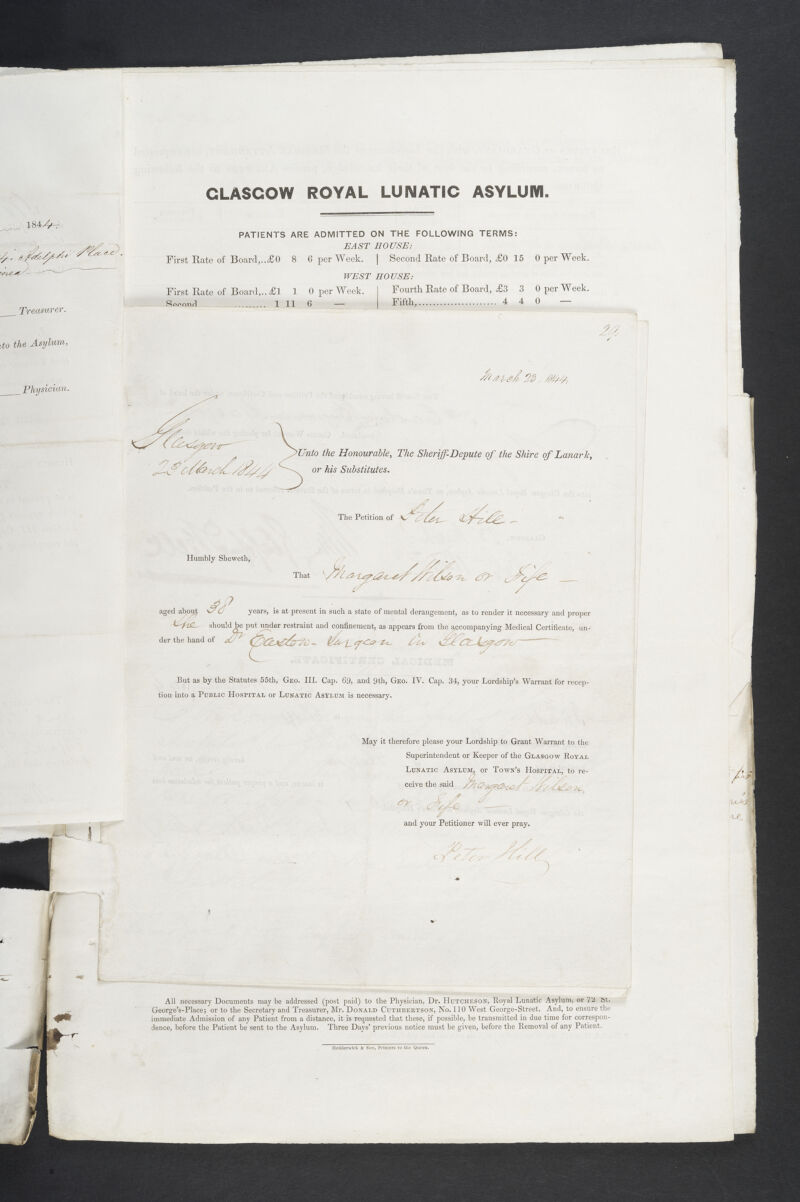 1844.
4. Adelphi Place.
Treasurer.
to the Asylum,
Physician.
GLASGOW ROYAL LUNATIC ASYLUM.
PATIENTS ARE ADMITTED ON THE FOLLOWING TERMS:
EAST HOUSE:
First Rate of Board,..£0 8 6 per Week. | Second Rate of Board, £0 15 0 per Week.
WEST HOUSE:
First Rate of Board,..£1 1 0 per Week. | Fourth Rate of Board, £3 3 0 per Week.
Second .................. 1 11 6 — | Fifth,........................ 4 4 0 —
29.
March 23. 1844.
Glasgow
23 March 1844
Unto the Honourable, The Sheriff-Depute of the Shire of Lanark,
or his Substitutes.
The Petition of Peter Hill –
Humbly Sheweth,
That Margaret Wilson or Fife –
aged about 38 years, is at present in such a state of mental derangement, as to render it necessary and proper
She should be put under restraint and confinement, as appears from the accompanying Medical Certificate, un-
der the hand of Dr Easton – Surgeon in Glasgow
But as by the Statutes 55th, GEO. III. Cap. 69, and 9th, GEO. IV. Cap. 34, your Lordship's Warrant for recep-
tion into a PUBLIC HOSPITAL or LUNATIC ASYLUM is necessary.
May it therefore please your Lordship to Grant Warrant to the
Superintendent or Keeper of the GLASGOW ROYAL
LUNATIC ASYLUM, or TOWN'S HOSPITAL, to re-
ceive the said Margaret Wilson
or Fife –
and your Petitioner will ever pray.
Peter Hill
All necessary Documents may be addressed (post paid) to the Physician, Dr. HUTCHESON, Royal Lunatic Asylum, or 72 St.
George's-Place; or to the Secretary and Treasurer, Mr. DONALD CUTHBERTSON, No. 110 West George-Street. And, to ensure the
immediate Admission of any Patient from a distance, it is requested that these, if possible, be transmitted in due time for correspon-
dence, before the Patient be sent to the Asylum. Three Days' previous notice must be given, before the Removal of any Patient.
Hedderwick & Son, Printers to the Queen.